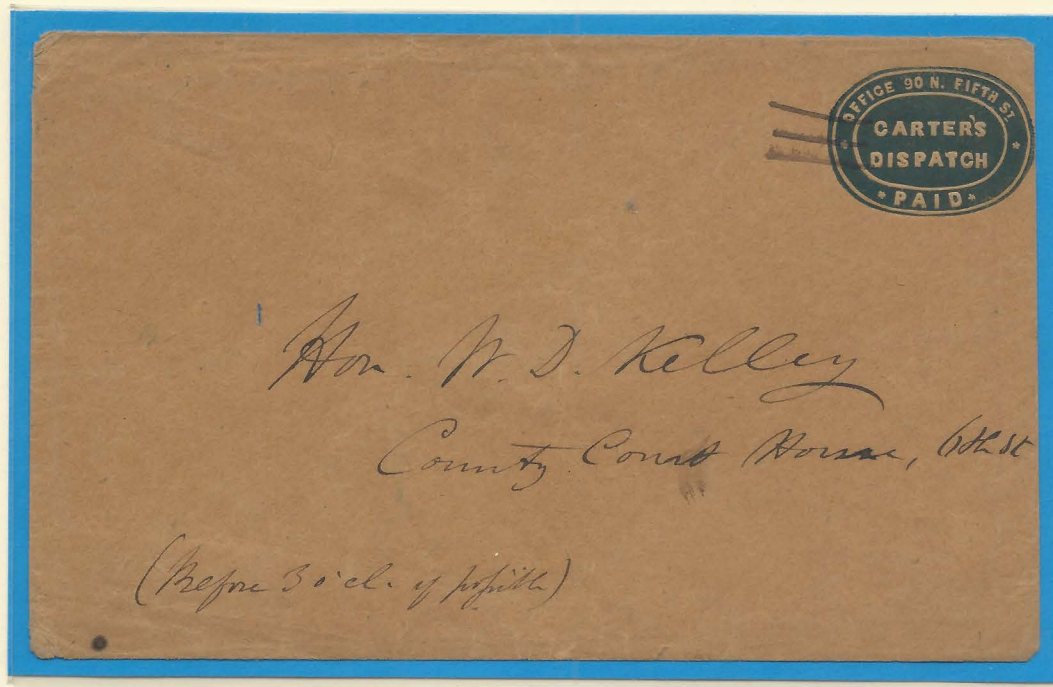 OFFICE 90 N. FIFTH ST
CARTER'S
DISPATCH
PAID
Hon. W. D. Kelley
County Court House, 6th St
(Before 3 o'cl. if possible)